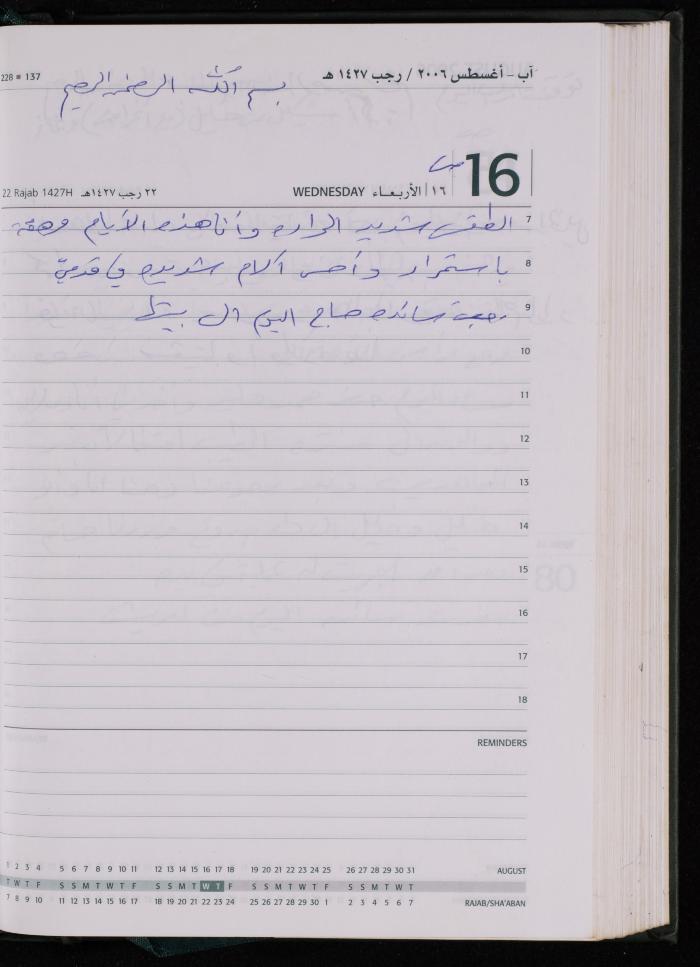 228 ■ 137
آب - أغسطس ٢٠٠٦ / رجب ١٤٢٧ هـ
بسم الله الرحمن الرحيم
22 Rajab 1427H ٢٢ رجب ١٤٢٧هـ WEDNESDAY الأربعاء ١٦ 16
7 الطقس شديد الحراره وأنا هذه الأيام مرهقة
8 باستمرار وأحس آلام شديده في قدميّ
9 صباح اليوم
10
11
12
13
14
15
16
17
18
REMINDERS
1 2 3 4 5 6 7 8 9 10 11 12 13 14 15 16 17 18 19 20 21 22 23 24 25 26 27 28 29 30 31 AUGUST
T W T F S S M T W T F S S M T W T F S S M T W T F S S M T W T
7 8 9 10 11 12 13 14 15 16 17 18 19 20 21 22 23 24 25 26 27 28 29 30 1 2 3 4 5 6 7 RAJAB/SHA'ABAN